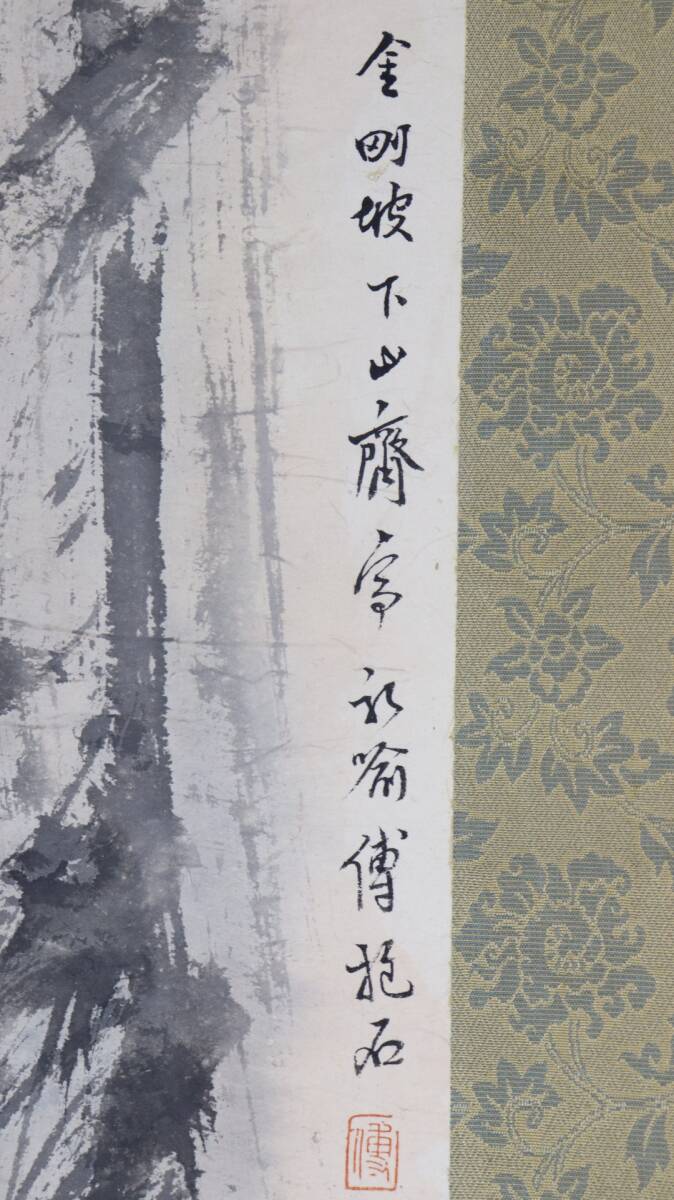 金剛坡下山齋寫新喻傅抱石
傅